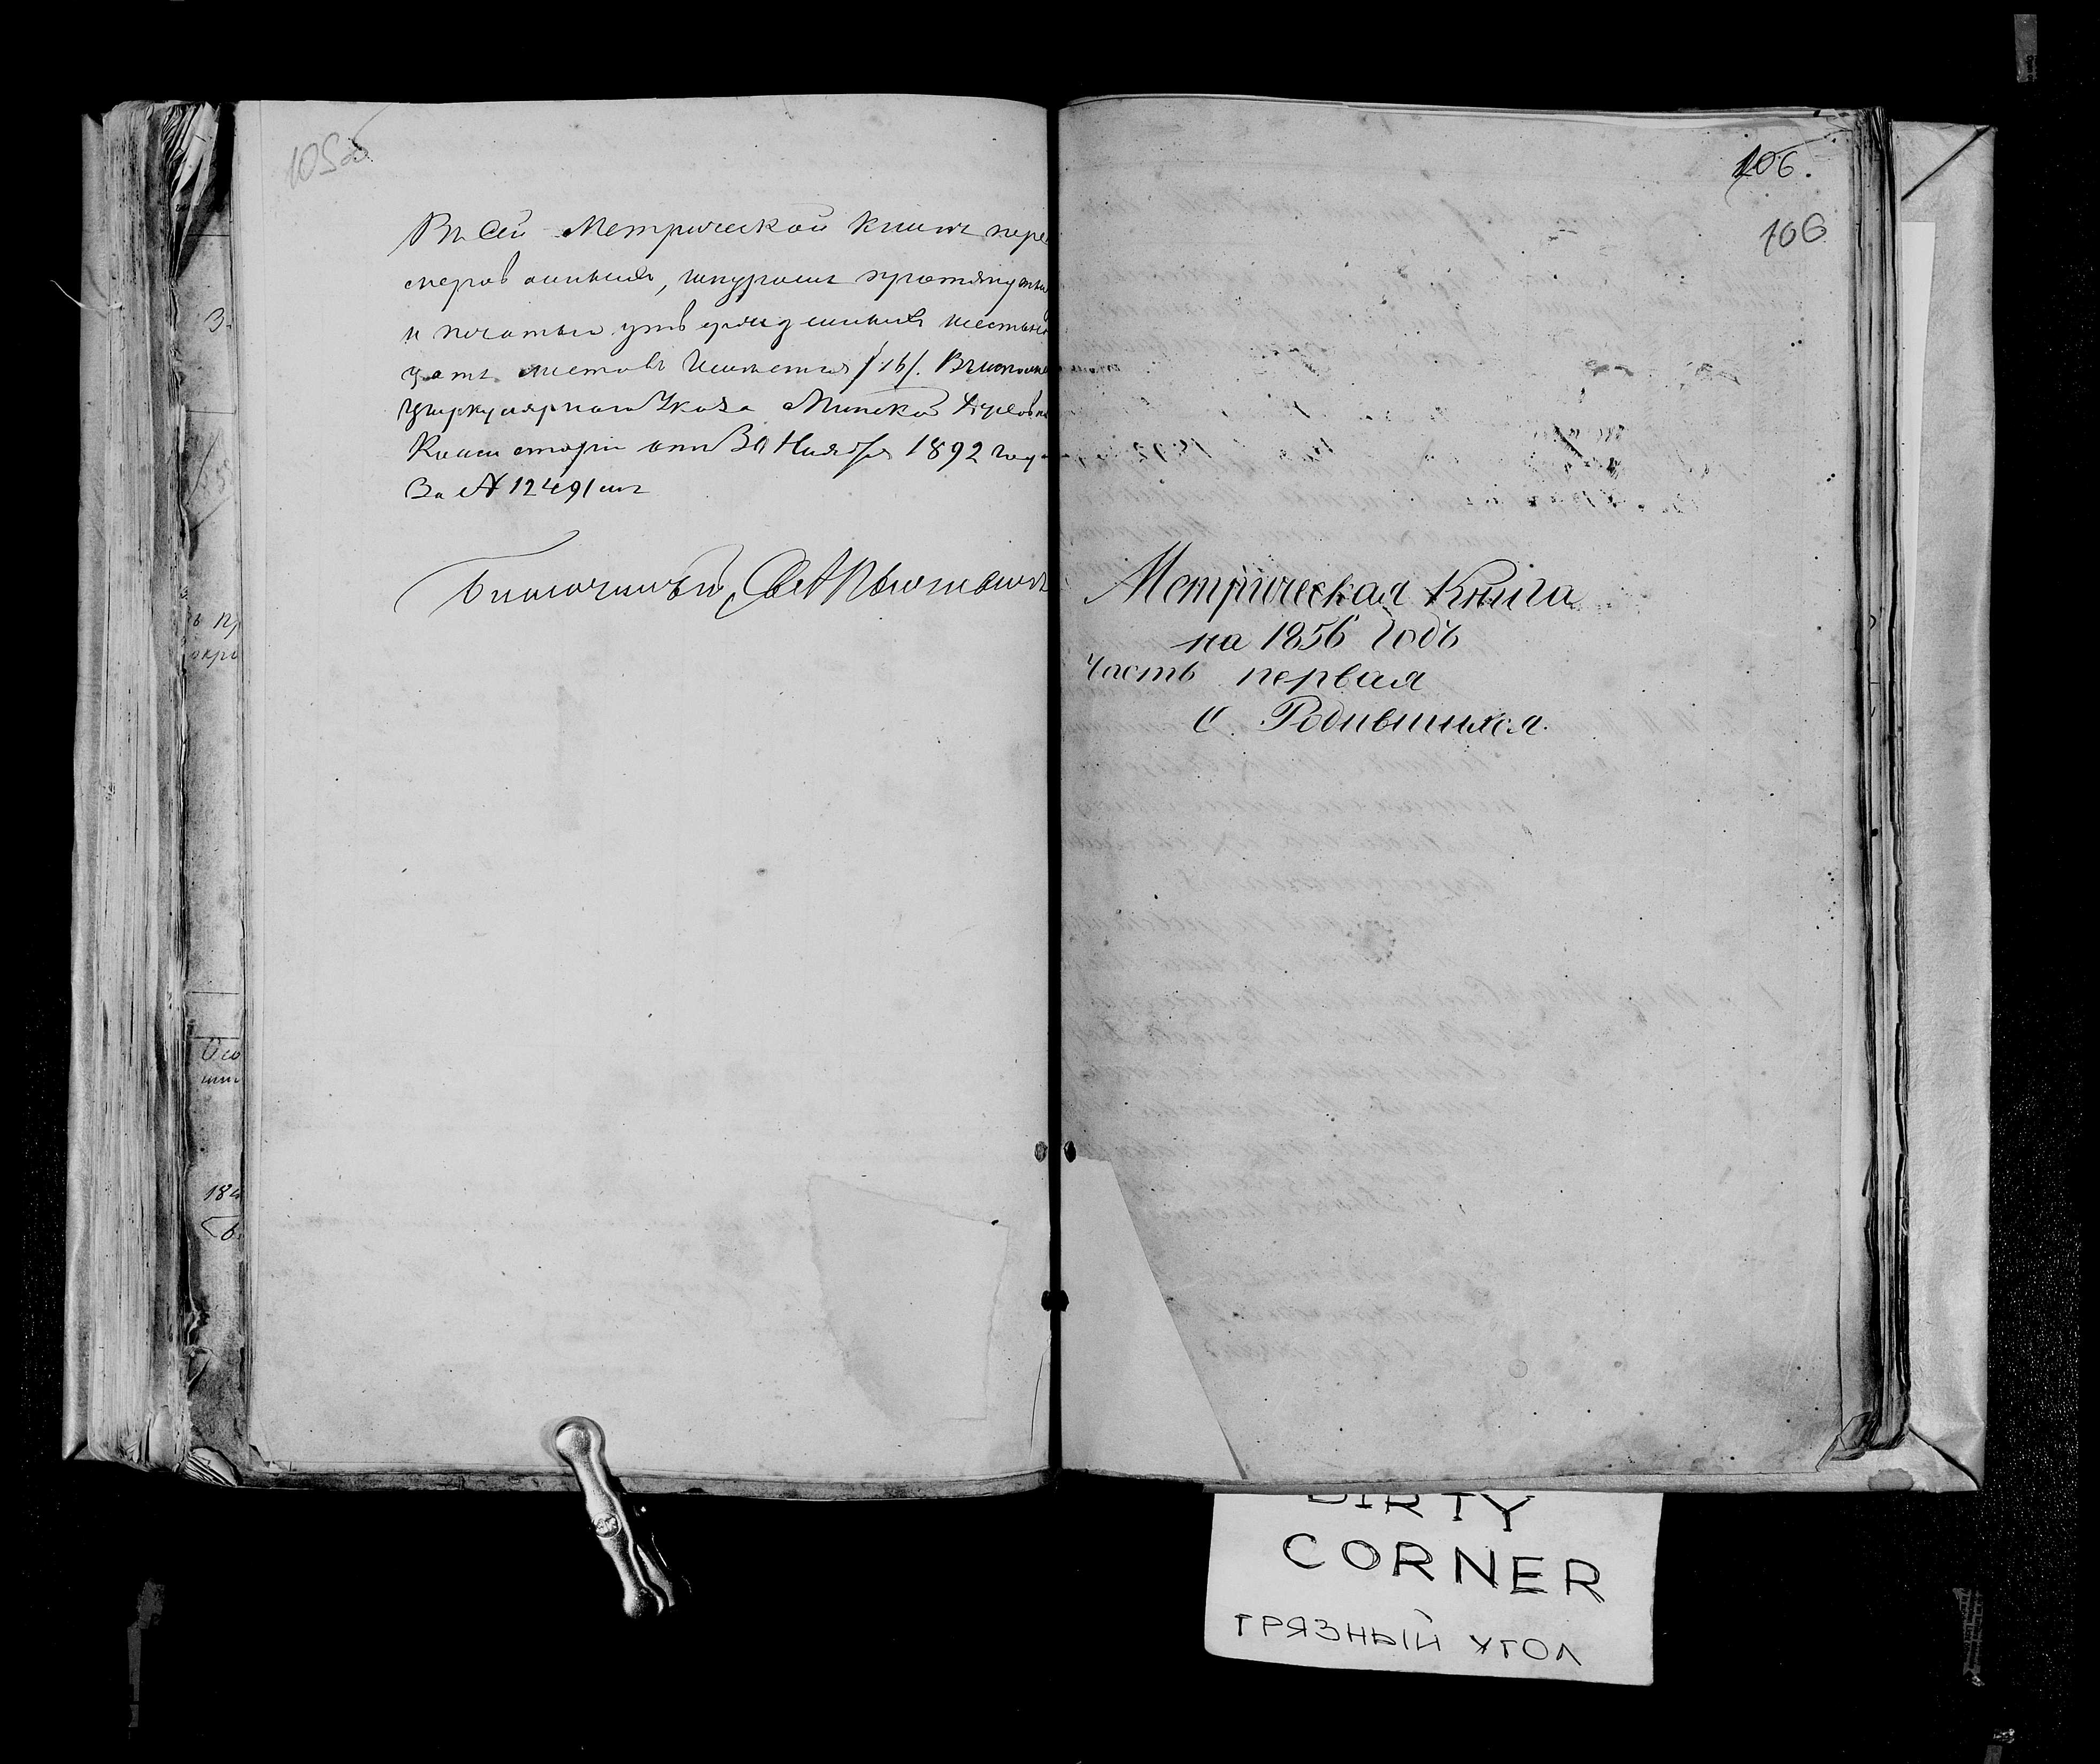 105об
Въ сей Метрической Книгѣ пере
меровонныхъ, шнуромъ протянутых
и печатью утвержденныхъ шестьна
цать листовъ имѣется /16/. Въ исполне
Циркулярного Указа Минской Духовно
Консисторіи отъ 30 Ноября 1892 год
За № 12491
Благочинный, Свящ
106.
106
Метрическая Книга
на 1856 годъ
Часть первая
О Родившихся.
DIRTY
CORNER
ГРЯЗНЫЙ УГОЛ